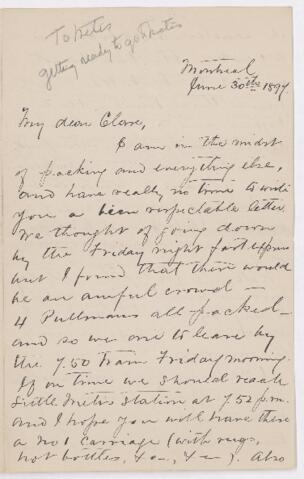 To Metis
getting ready to go to Metis
Montreal
June 30th 1897.
My dear Clare,
I am in the midst
of packing and everything else,
and have really no time to write
you a been respectable letter.
We thought of going down
by the Friday night fast express
but I found that there would
be an awful crowd —
4 Pullmans all packed —
and so we are to leave by
the 7.50 train Friday morning.
If on time we should reach
Little Metis Station at 7.52 p.m.
and I hope you will have there
a No 1 carriage (with rugs,
hot bottles, &c., &c.). Also